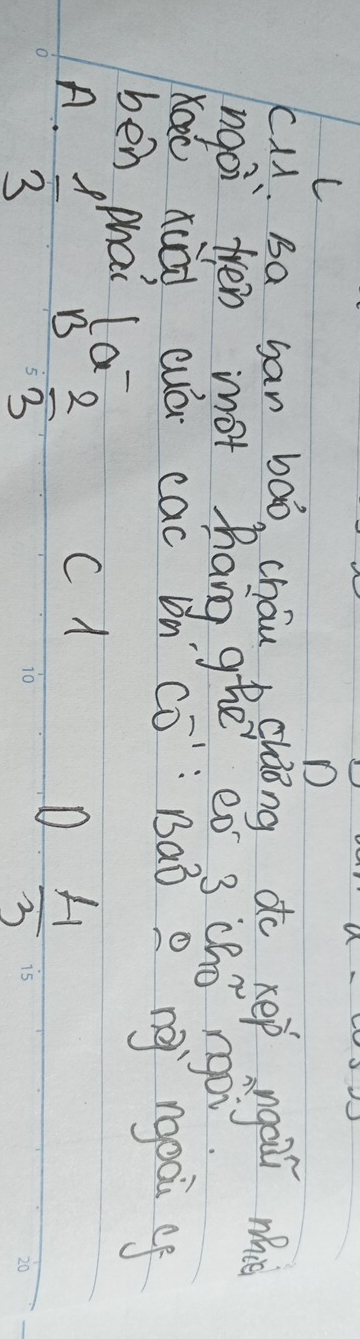 C11. Ba bạn bảo, châu, chương đc xếp ngẫu nhiê
ngồi trên một hàng ghế có 3 chỗ ngồi.
xác xuất của các bn có: Bảo o ng ngoài cg
bên phải là
A. 1/3 B 2/3 C 1 D 4/3
0 5 10 15 20